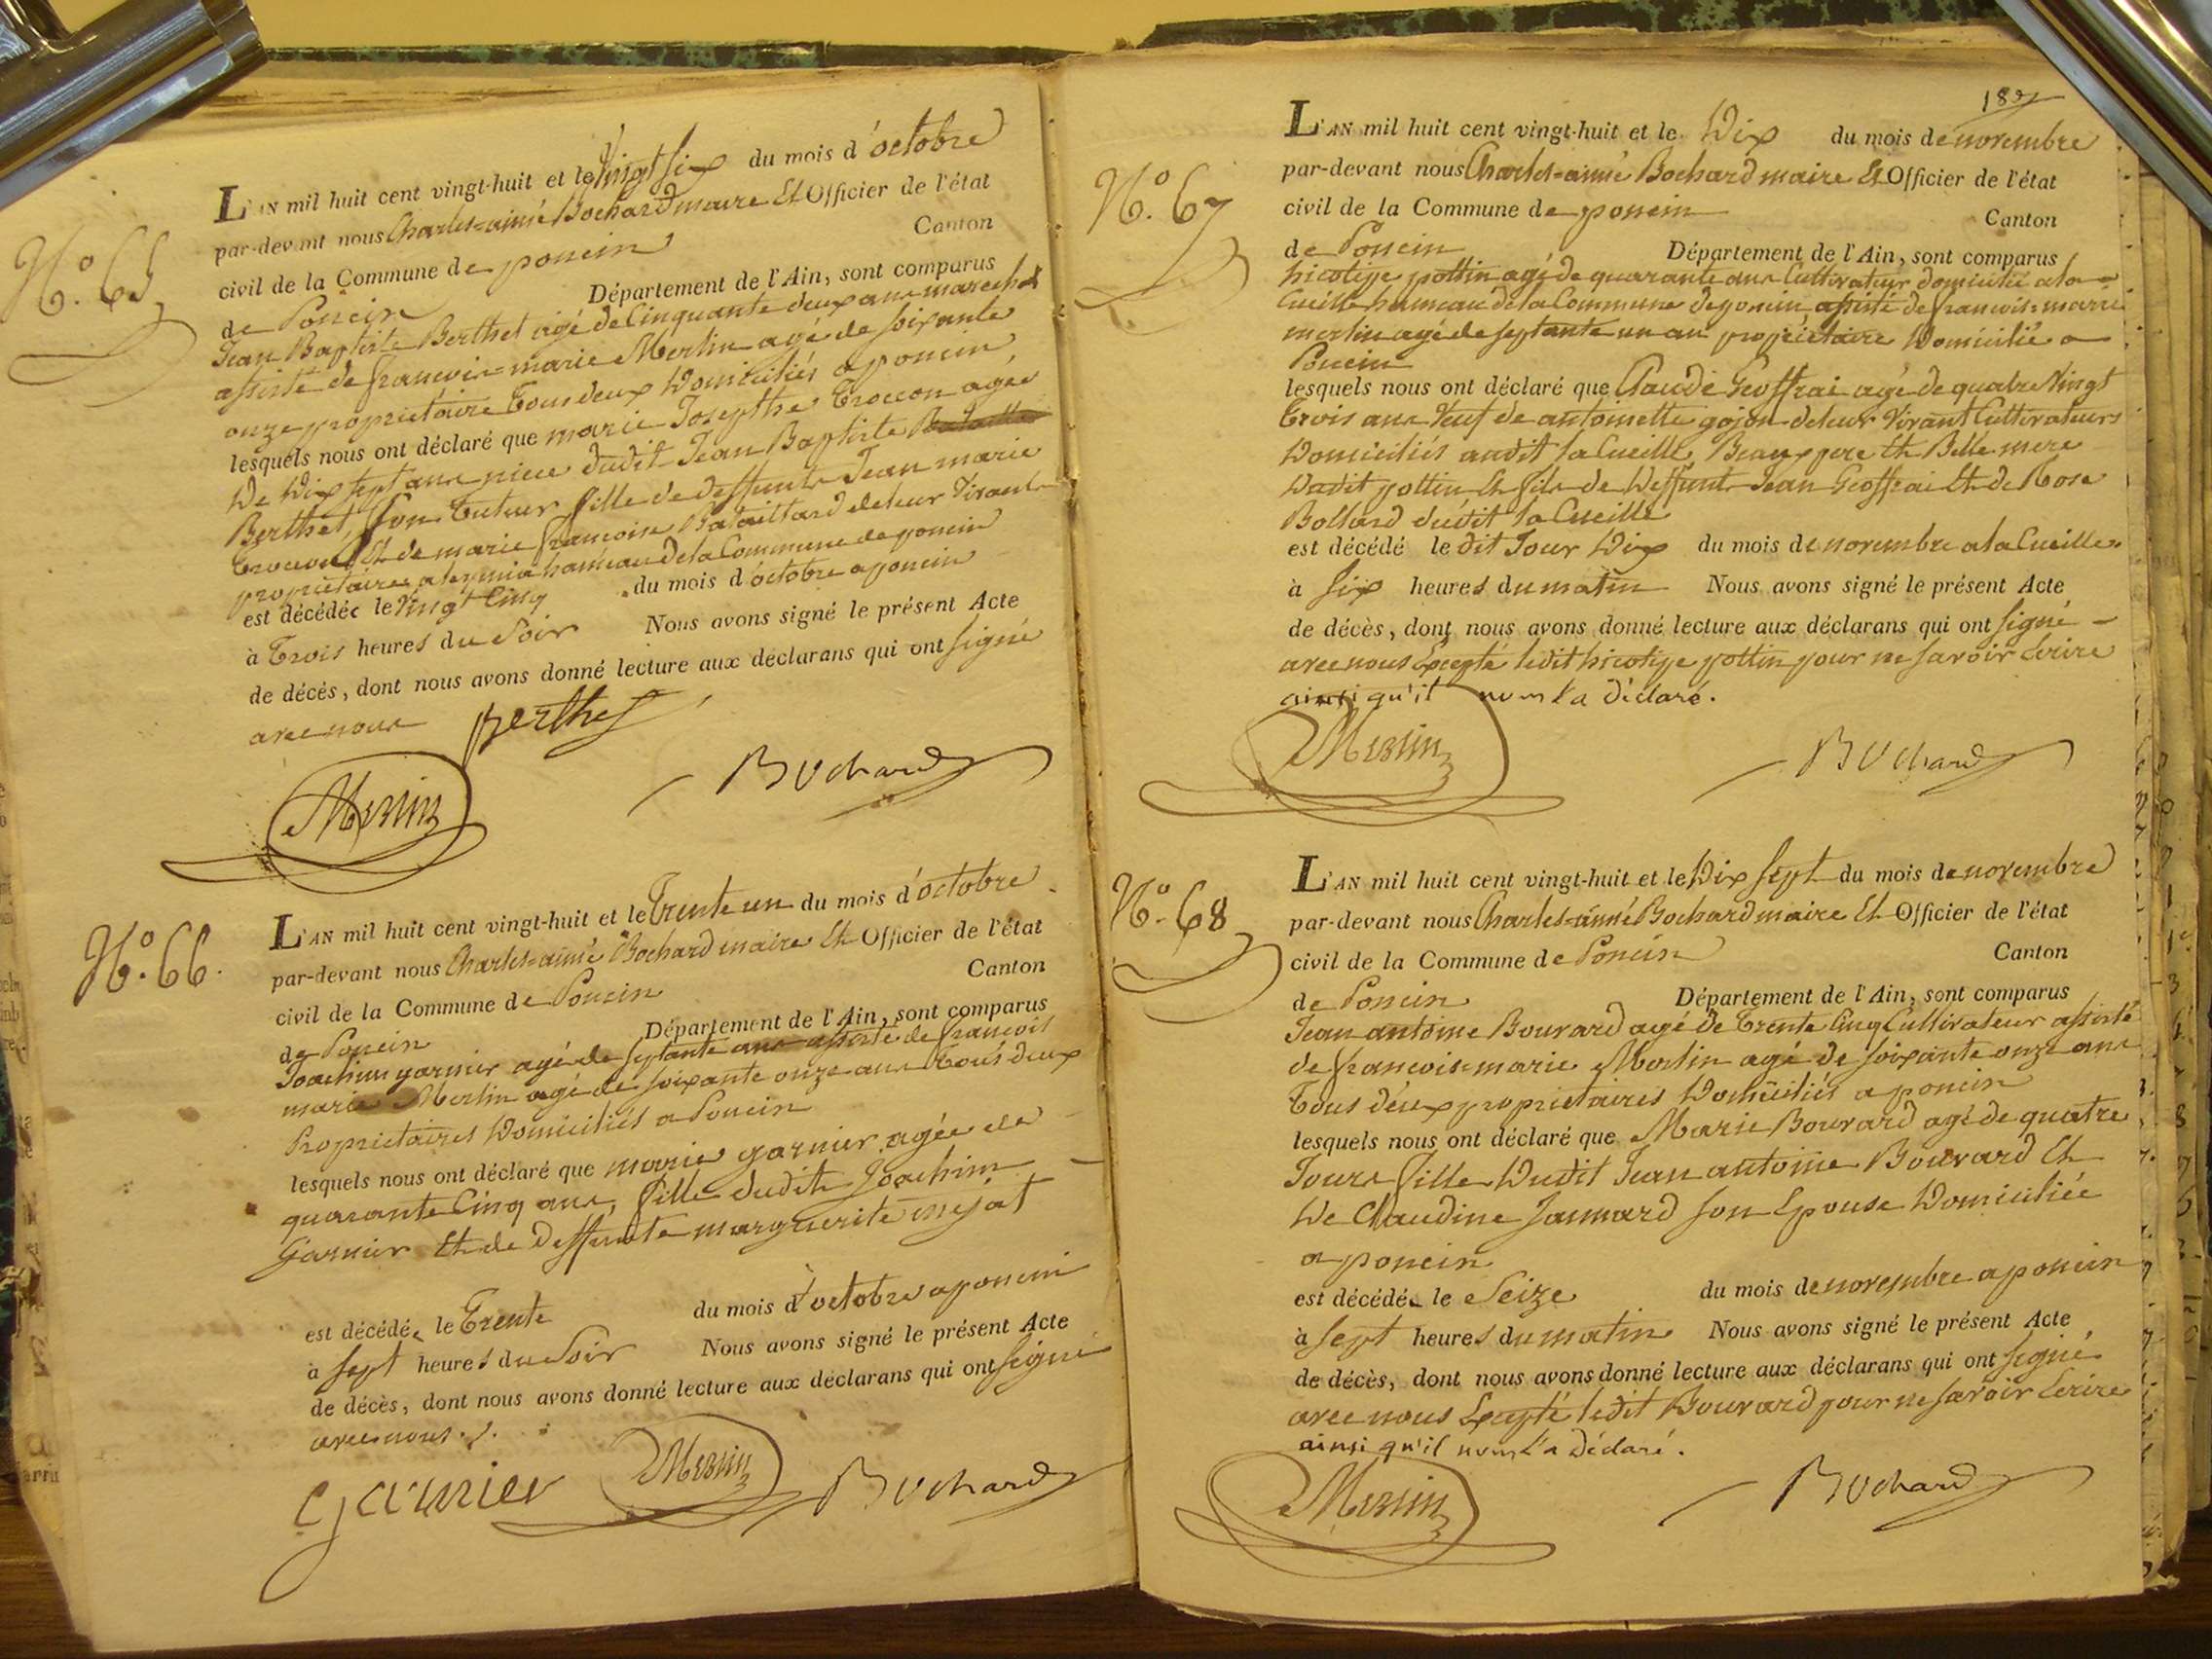 N.° 65
L'AN mil huit cent vingt-huit et le Vingt Six du mois d'octobre
par-devant nous Charles=aimé Bochard maire Et Officier de l'état
civil de la Commune de poncin Canton
de Poncin Département de l'Ain, sont comparus
Jean Baptiste Berthet agé de Cinquante deux ans marechal
assisté de francois=marie Merlin agé de soixante
onze proprietaire Tous deux Domiciliés a poncin,
lesquels nous ont déclaré que marie Josephte Trocon agée
De Dix sept ans niece dudit Jean Baptiste
Berthet, son Tuteur fille de deffunts Jean marie
Trocon Et de marie francoise Bataillard de leur Vivant
proprietaires a hameau de la Commune de poncin
est décédée le Vingt Cinq du mois d'octobre a poncin
à Trois heures du Soir Nous avons signé le présent Acte
de décès, dont nous avons donné lecture aux déclarans qui ont signé
avec nous Berthet
Merlin Bochard
N.° 66.
L'AN mil huit cent vingt-huit et le Trente un du mois d'octobre
par-devant nous Charles=aimé Bochard maire Et Officier de l'état
civil de la Commune de Poncin Canton
de Poncin Département de l'Ain, sont comparus
Joachim garnier agé de septante ans assisté de francois
marie Merlin agé de soixante onze ans Tous deux
Proprietaires Domiciliés a Poncin
lesquels nous ont déclaré que marie garnier agée de
quarante Cinq ans, fille dudit Joachim
Garnier Et de Deffunte marguerite mejat
est décédée le Trente du mois d'octobre a poncin
à sept heures du Soir Nous avons signé le présent Acte
de décès, dont nous avons donné lecture aux déclarans qui ont signé
avec nous.
Garnier Merlin Bochard
N.° 67
L'AN mil huit cent vingt-huit et le Dix du mois de novembre
par-devant nous Charles=aimé Bochard maire Et Officier de l'état
civil de la Commune de poncin Canton
de Poncin Département de l'Ain, sont comparus
hicotipe pottin agé de quarante ans Cultivateur domicilié a la
Cueille hameau de la Commune de poncin assisté de francois=marie
merlin agé de septante un an proprietaire Domicilié a
Poncin
lesquels nous ont déclaré que Claude Geoffrai agé de quatre Vingt
Trois ans Veuf de antoinette gojon de leur Vivant Cultivateurs
Domiciliés audit la Cueille, Beaux pere Et Belle mere
Dudit pottin Et fils de Deffunts Jean Geoffrai Et de Rose
Bollard dudit la Cueille
est décédé le dit Jour Dix du mois de novembre a la Cueille.
à six heures du matin Nous avons signé le présent Acte
de décès, dont nous avons donné lecture aux déclarans qui ont signé
avec nous Excepté ledit hicotipe pottin pour ne savoir Ecrire
ainsi qu'il nous l'a Déclaré.
Merlin Bochard
N.° 68
L'AN mil huit cent vingt-huit et le Dix sept du mois de novembre
par-devant nous Charles=aimé Bochard maire Et Officier de l'état
civil de la Commune de Poncin Canton
de Poncin Département de l'Ain, sont comparus
Jean antoine Bouvard agé de Trente Cinq Cultivateur assisté
de francois=marie Merlin agé de soixante onze ans
Tous deux proprietaires Domiciliés a poncin
lesquels nous ont déclaré que Marie Bouvard agé de quatre
Jours fille Dudit Jean antoine Bouvard Et
De Claudine Jannard son Epouse Domiciliée
a poncin
est décédée le Seize du mois de novembre a poncin
à sept heures du matin Nous avons signé le présent Acte
de décès, dont nous avons donné lecture aux déclarans qui ont signé
avec nous Excepté ledit Bouvard pour ne savoir Ecrire
ainsi qu'il nous l'a Déclaré.
Merlin Bochard